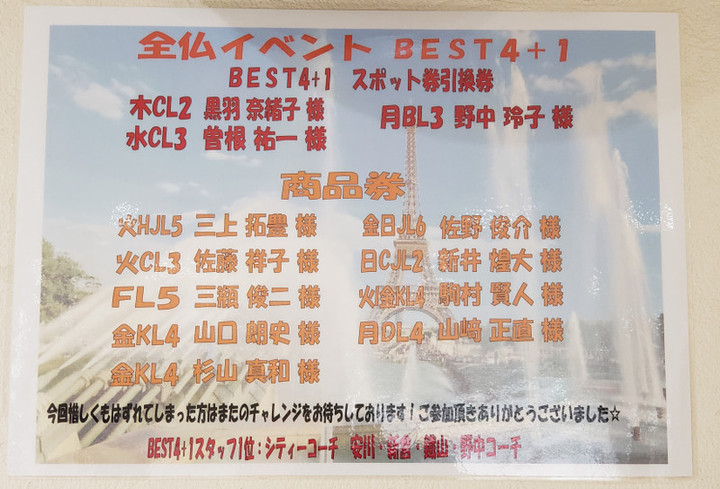 全仏イベント BEST4+1
BEST4+1 スポット券引換券
木CL2 黒羽 奈緒子 様 月BL3 野中 玲子 様
水CL3 曽根 祐一 様
商品券
火HJL5 三上 拓豊 様 金日JL6 佐野 俊介 様
火CL3 佐藤 祥子 様 日CJL2 新井 煌大 様
FL5 三瓶 俊二 様 火金KL4 駒村 賢人 様
金KL4 山口 朗史 様 月DL4 山﨑 正直 様
金KL4 杉山 真和 様
今回惜しくもはずれてしまった方はまたのチャレンジをお待ちしております!ご参加頂きありがとうございました☆
BEST4+1スタッフ1位:シティーコーチ 安川・・山・野中コーチ